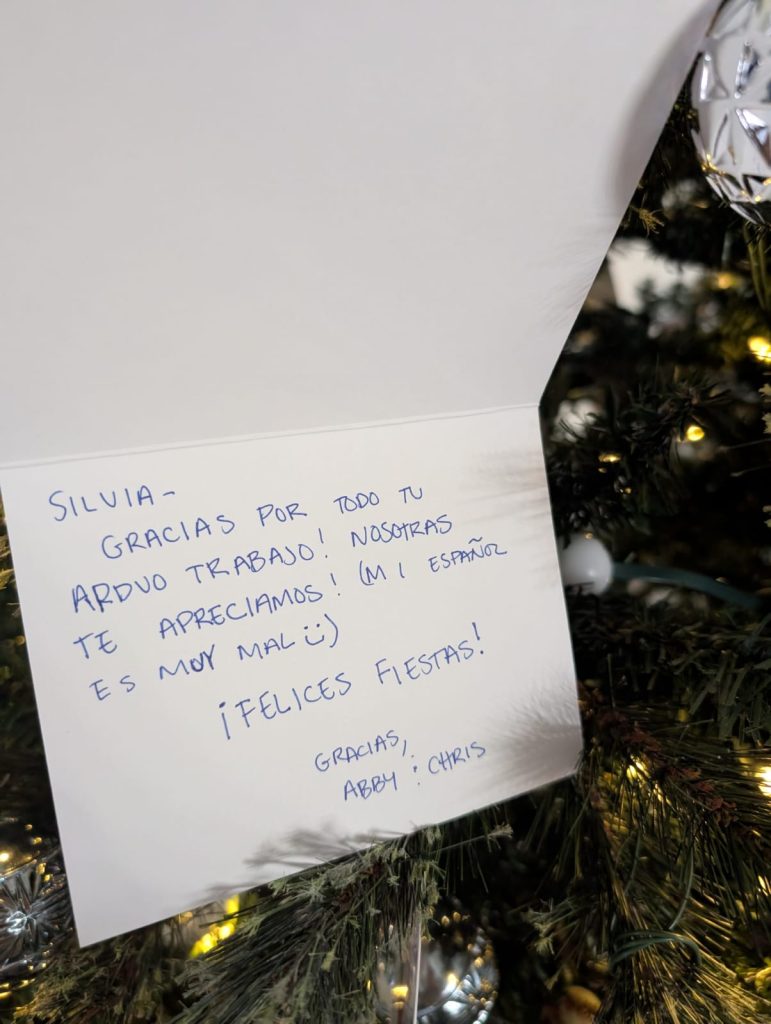 SILVIA-
GRACIAS POR TODO TU
ARDUO TRABAJO! NOSOTRAS
TE APRECIAMOS! (MI ESPAÑOL
ES MUY MAL Ü)
¡FELICES FIESTAS!
GRACIAS,
ABBY : CHRIS